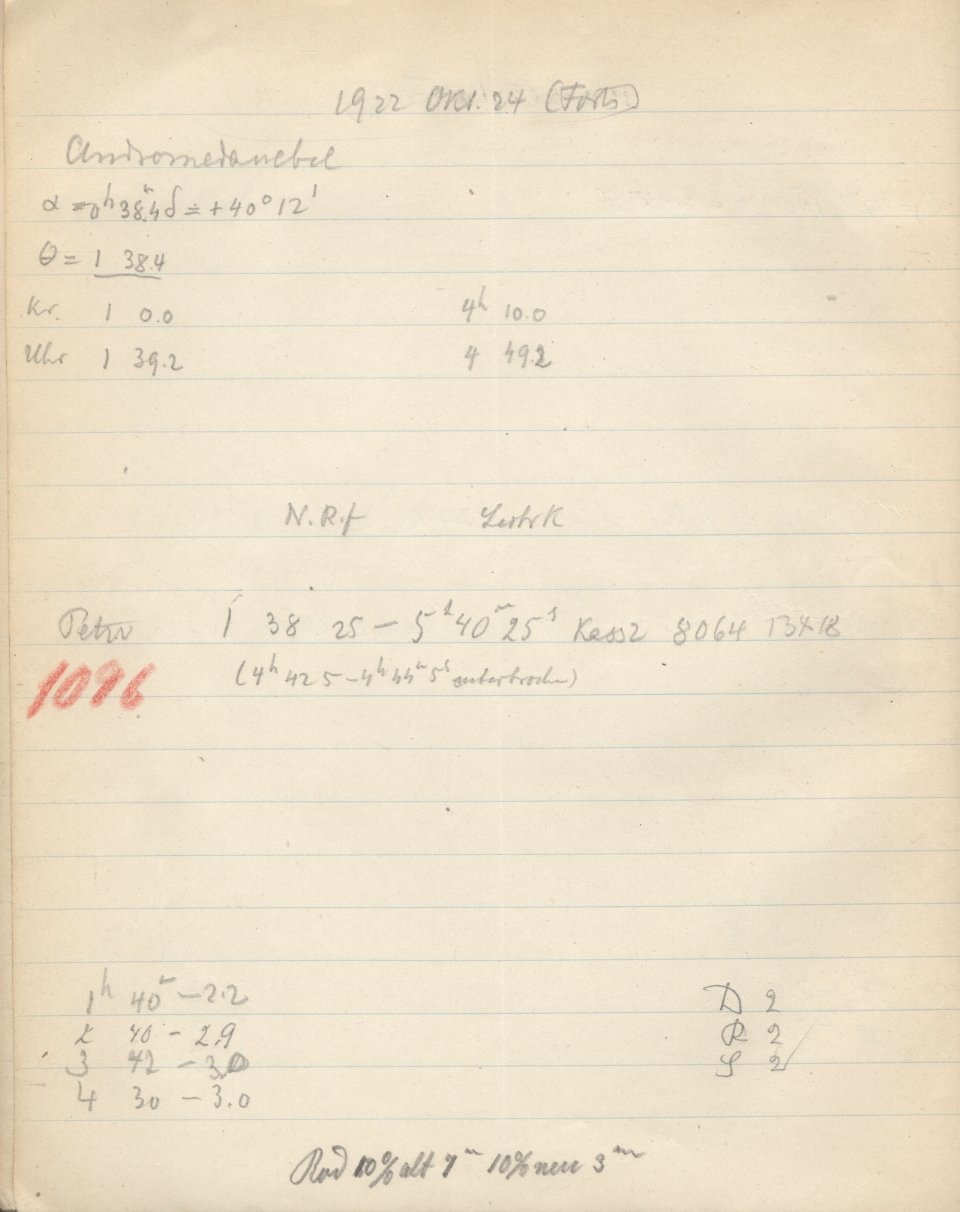 1922 Okt. 24 (Forts.)
Andromedanebel
α = 0ʰ 38.4 δ = +40° 12'
θ = 1 38.4
Kr. 1 0.0 4ʰ 10.0
Uhr 1 39.2 4 49.2
N.R.f
Petzv 1 38 25 – 5ʰ 40ᵐ 25ˢ Kass 2 8064 13x18
1096
(4ʰ 42 5 – 4ʰ 44ᵐ 5ˢ unterbrochen)
1ʰ 40ᵐ – 2.2 D 2
2 40 – 2.9 R 2
3 42 – 3.0 S 2
4 30 – 3.0
Rod 10% alt 7ᵐ 10% neu 3ᵐ